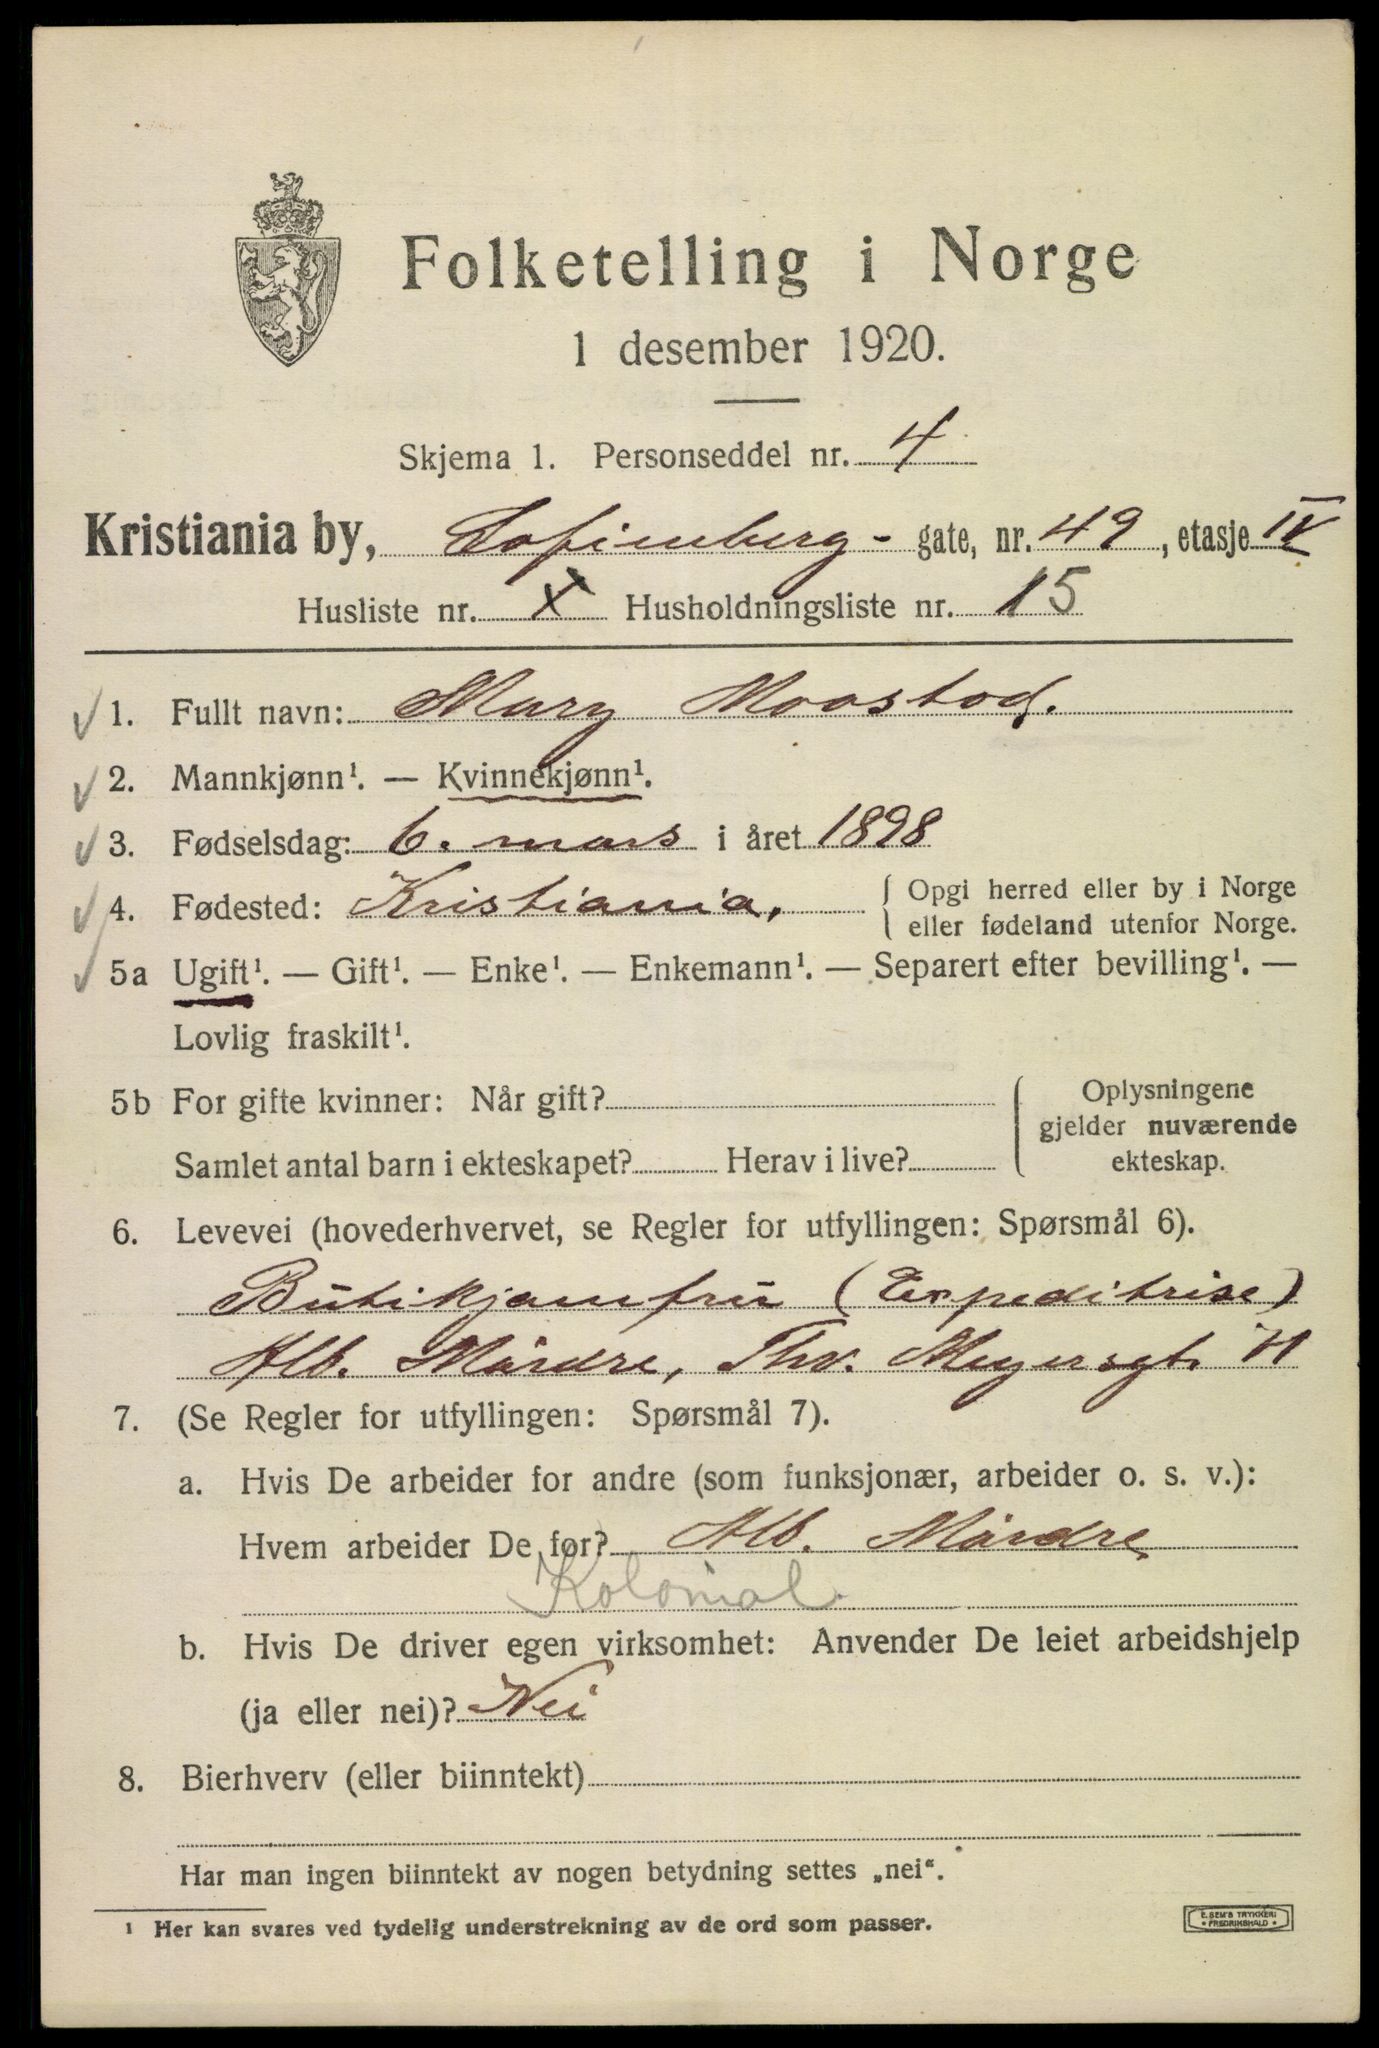 Folketelling i Norge
1 desember 1920.
Skjema 1. Personseddel nr. 4
Kristiania by, Sofienberg- gate, nr. 49, etasje IV
Husliste nr. X Husholdningsliste nr. 15
1. Fullt navn: Mary Moastod.
2. Mannkjønn¹. — Kvinnekjønn¹.
3. Fødselsdag: 6. mars i året 1898
4. Fødested: Kristiania, { Opgi herred eller by i Norge
eller fødeland utenfor Norge.
5a Ugift¹. — Gift¹. — Enke¹. — Enkemann¹. — Separert efter bevilling¹. —
Lovlig fraskilt¹.
5b For gifte kvinner: Når gift? Oplysningene
gjelder nuværende
Samlet antal barn i ekteskapet? Herav i live? ekteskap.
6. Levevei (hovederhvervet, se Regler for utfyllingen: Spørsmål 6).
Butikjomfru (Expeditrise)
Alb. Mårdre, Thv. Meyersgt.
7. (Se Regler for utfyllingen: Spørsmål 7).
a. Hvis De arbeider for andre (som funksjonær, arbeider o. s. v.):
Hvem arbeider De for? Alb. Mårdre
Kolonial.
b. Hvis De driver egen virksomhet: Anvender De leiet arbeidshjelp
(ja eller nei)? Nei
8. Bierhverv (eller biinntekt)
Har man ingen biinntekt av nogen betydning settes „nei“.
¹ Her kan svares ved tydelig understrekning av de ord som passer.
E. SEM'S TRYKKERI
FREDRIKSHALD